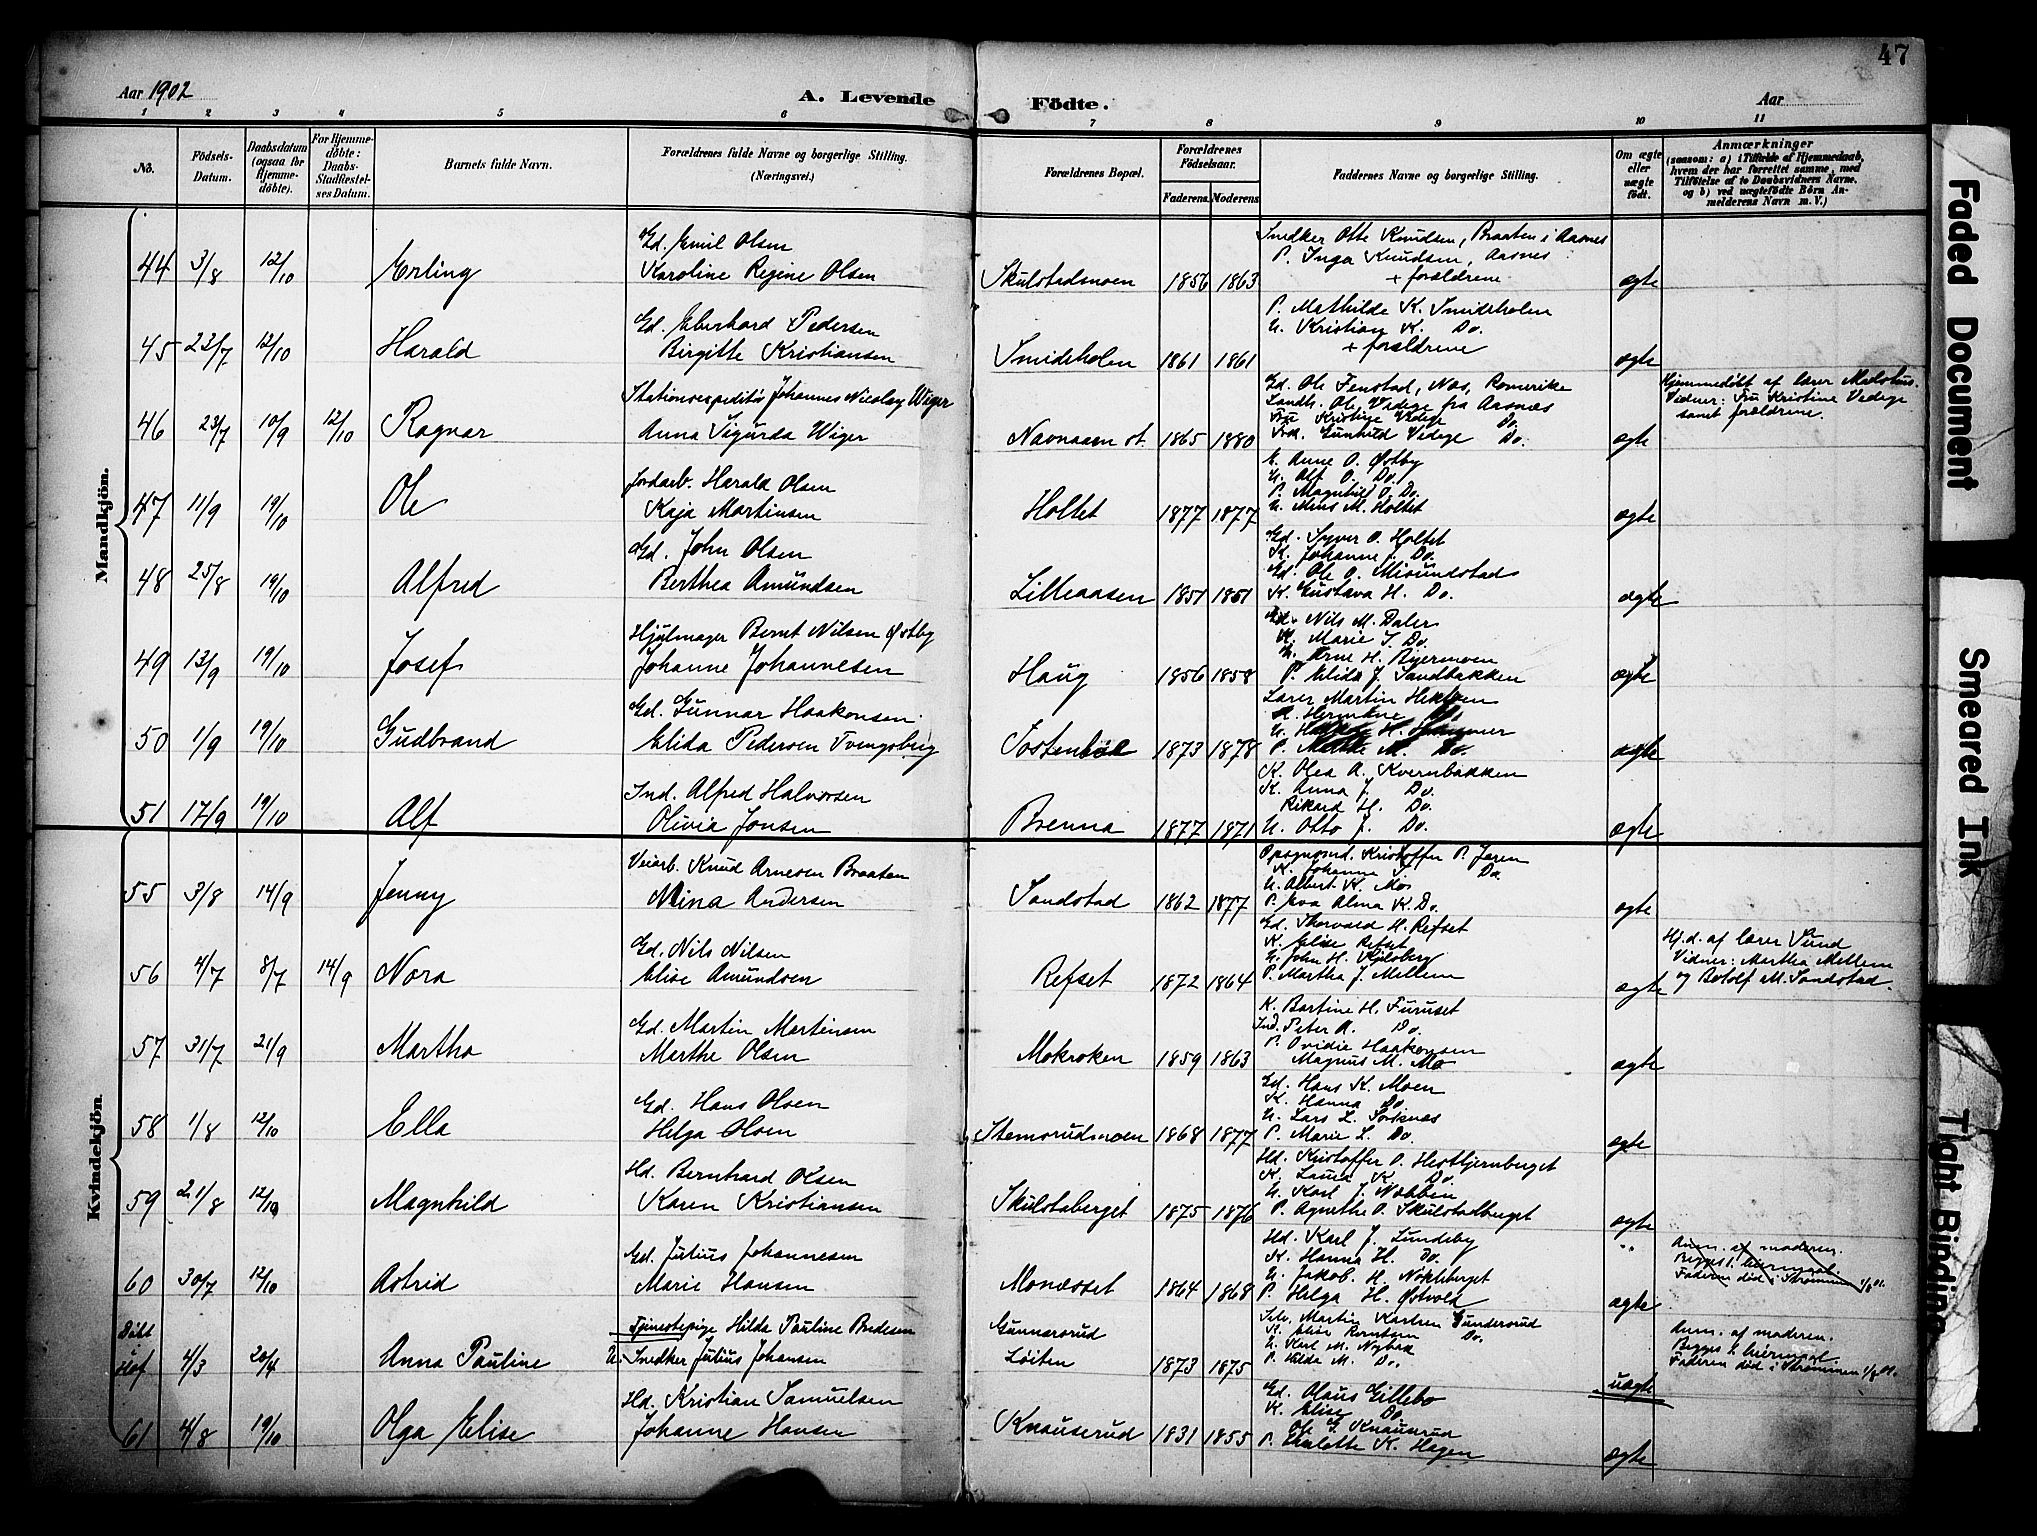 47
Aar 1902
A. Levende Födte.
Aar
1 2 3 4 5 6 7 8 9 10 11
No.
Födsels-Datum.
Daabsdatum (ogsaa for Hjemmedöbte).
For Hjemmedöbte: Daabs-Stadfæstelses Datum.
Barnets fulde Navn.
Forældrenes fulde Navne og borgerlige Stilling. (Næringsvei.)
Forældrenes Bopæl.
Forældrenes Födselsaar.
Faderens. Moderens.
Faddernes Navne og borgerlige Stilling.
Om ægte eller uægte födt.
Anmærkninger
(saasom: a) i Tilfælde af Hjemmedaab, hvem der har forrettet samme, med Tilföielse af to Daabsvidners Navne, og b) ved uægtefödte Börn Anmelderens Navn m. V.)
Mandkjön.
44 3/8 12/10 Erling
Gd. Emil Olsen
Karoline Regine Olsen
Skulstadmoen 1856 1863
Snedker Otte Knudsen, Braaten i Aasnes
P. Inga Knudsen, Aasnes
+ forældrene
ægte
45 23/7 12/10 Harald
Gd. Eberhard Pedersen
Birgitte Kristiansen
Smidsholen 1861 1861
P. Mathilde K. Smidsholen
U. Kristian K. Do.
+ forældrene
ægte
46 23/7 10/9 12/10 Ragnar
Stationsexpeditör Johannes Nicolay Wiger
Anna Sigurda Wiger
Navnaaen st. 1865 1880
Gd. Ole Fenstad, Næs, Romerike
Landh. Ole Vedege fra Aasnæs
Fru Kristine Vedege Do.
Frk. Gunhild Vedege Do.
ægte
Hjemmedöbt af lærer Melshus.
Vidner: Fru Kristine Vedege
samt forældrene.
47 11/9 19/10 Ole
Jordarb. Harald Olsen
Kaja Martinsen
Holtet 1877 1877
K. Anne O. Østby
U. Alf O. Do.
P. Magnhild O. Do.
U. Mins M. Holtet
ægte
48 25/8 19/10 Alfred
Gd. John Olsen
Berthea Amundsen
Lilleaasen 1857 1861
Gd. Syver O. Holtet
K. Johanne J. Do.
Gd. Ole O. Misundstad
K. Gustava H. Do.
ægte
49 13/9 19/10 Josef
Hjulmager Bernt Nilsen Østby
Johanne Johannesen
Haug 1856 1858
Gd. Nils M. Daler
K. Marie T. Do.
U. Arne H. Bjermoen
P. Elida J. Sandbakken
ægte
50 1/9 19/10 Gudbrand
Gd. Gunnar Haakonsen
Elida Pedersen Tvengsberg
1873 1878
Lærer Martin
K. Hermine Do
U.
P. M. Do.
ægte
51 17/9 19/10 Alf
Ind. Alfred Halvorsen
Olivia Jonsen
Brenna 1877 1871
K. Olea A. Kvernbakken
K. Anna J. Do.
Rikard H. Do.
U. Otto J. Do.
ægte
Kvindekjön.
55 3/8 14/9 Jenny
Veiarb. Knud Arnesen Braaten
Mina Andersen
Sandstad 1862 1877
Opsynsmd. Kristoffer P. Jaren
K. Johanne T. Do
U. Albert K. Mo
P. Eva Alma K. Do.
ægte
56 4/7 8/7 14/9 Nora
Gd. Nils Nilsen
Elise Amundsen
Refset 1872 1864
Gd. Thorvald H. Refset
K. Elise Refset
U. John H. Kjilsberg
P. Martha J. Mellem
ægte
Hj. d. af lærer Sund
Vidner: Martha Mellem
og Botolf M. Sandstad.
57 31/7 21/9 Martha
Gd. Martin Martinsen
Marthe Olsen
Mokroken 1859 1863
K. Bartine H. Furuset
Ind. Peter A. Do.
P. Ovidie Haakonsen
Magnus M. Mo
ægte
58 1/8 12/10 Ella
Gd. Hans Olsen
Helga Olsen
Stemsrudmoen 1868 1877
Gd. Hans K. Moen
K. Hanna Do
U. Lars L. Sorknæs
P. Marie L. Do.
ægte
59 21/8 12/10 Magnhild
Hd. Bernhard Olsen
Karen Kristiansen
Skulstaberget 1875 1876
Hd. Kristoffer O. Hestbjernberget
K. Laura K. Do.
U. Karl J. Nabben
P. Agnethe O. Skulstadberget
ægte
60 30/7 12/10 Astrid
Gd. Julius Johannesen
Marie Hansen
Monæsset 1864 1868
Hd. Karl J. Lundeby
K. Hanna H. Do.
U. Jakob H. Nokleberget
P. Helga H. Østvold
ægte
Anm. af moderen.
Begges 1. leiermaal.
Faderen död i Strömmen 1/8 01.
Döbt i Hof 4/3 20/4 Anna Pauline
Tjenestepige Hilda Pauline Bredesen
U. Snedker Julius Johansen
Gunnarsrud
Löiten 1873 1875
Selv. Martin Karlsen Gundersrud
K. Elise Berntsen Do.
U. Karl M. Nybed
P. Hilda M. Do.
uægte
Anm. af moderen.
Begges 1. leiermaal.
Faderen död i Strömmen 1/8 01.
61 4/8 19/10 Olga Elise
Hd. Kristian Samuelsen
Johanne Hansen
Knauserud 1831 1855
Gd. Olaus Gillebo
K. Elise Do
Ole G. Knausrud
P. Charlotte K. Hagen
ægte
Faded Document
Smeared Ink
Tight Binding